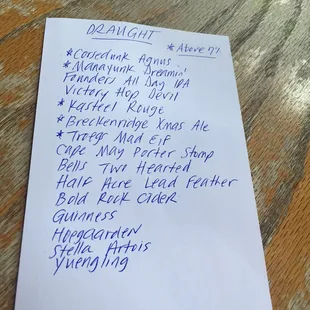 DRAUGHT
* Above 7%
* Corsedonk Agnus
* Manayunk Dreamin'
Founders All Day IPA
Victory Hop Devil
* Kasteel Rouge
* Breckenridge Xmas Ale
* Troegs Mad Elf
Cape May Porter Stomp
Bells Two Hearted
Half Acre Lead Feather
Bold Rock Cider
Guinness
Hoegaarden
Stella Artois
Yuengling